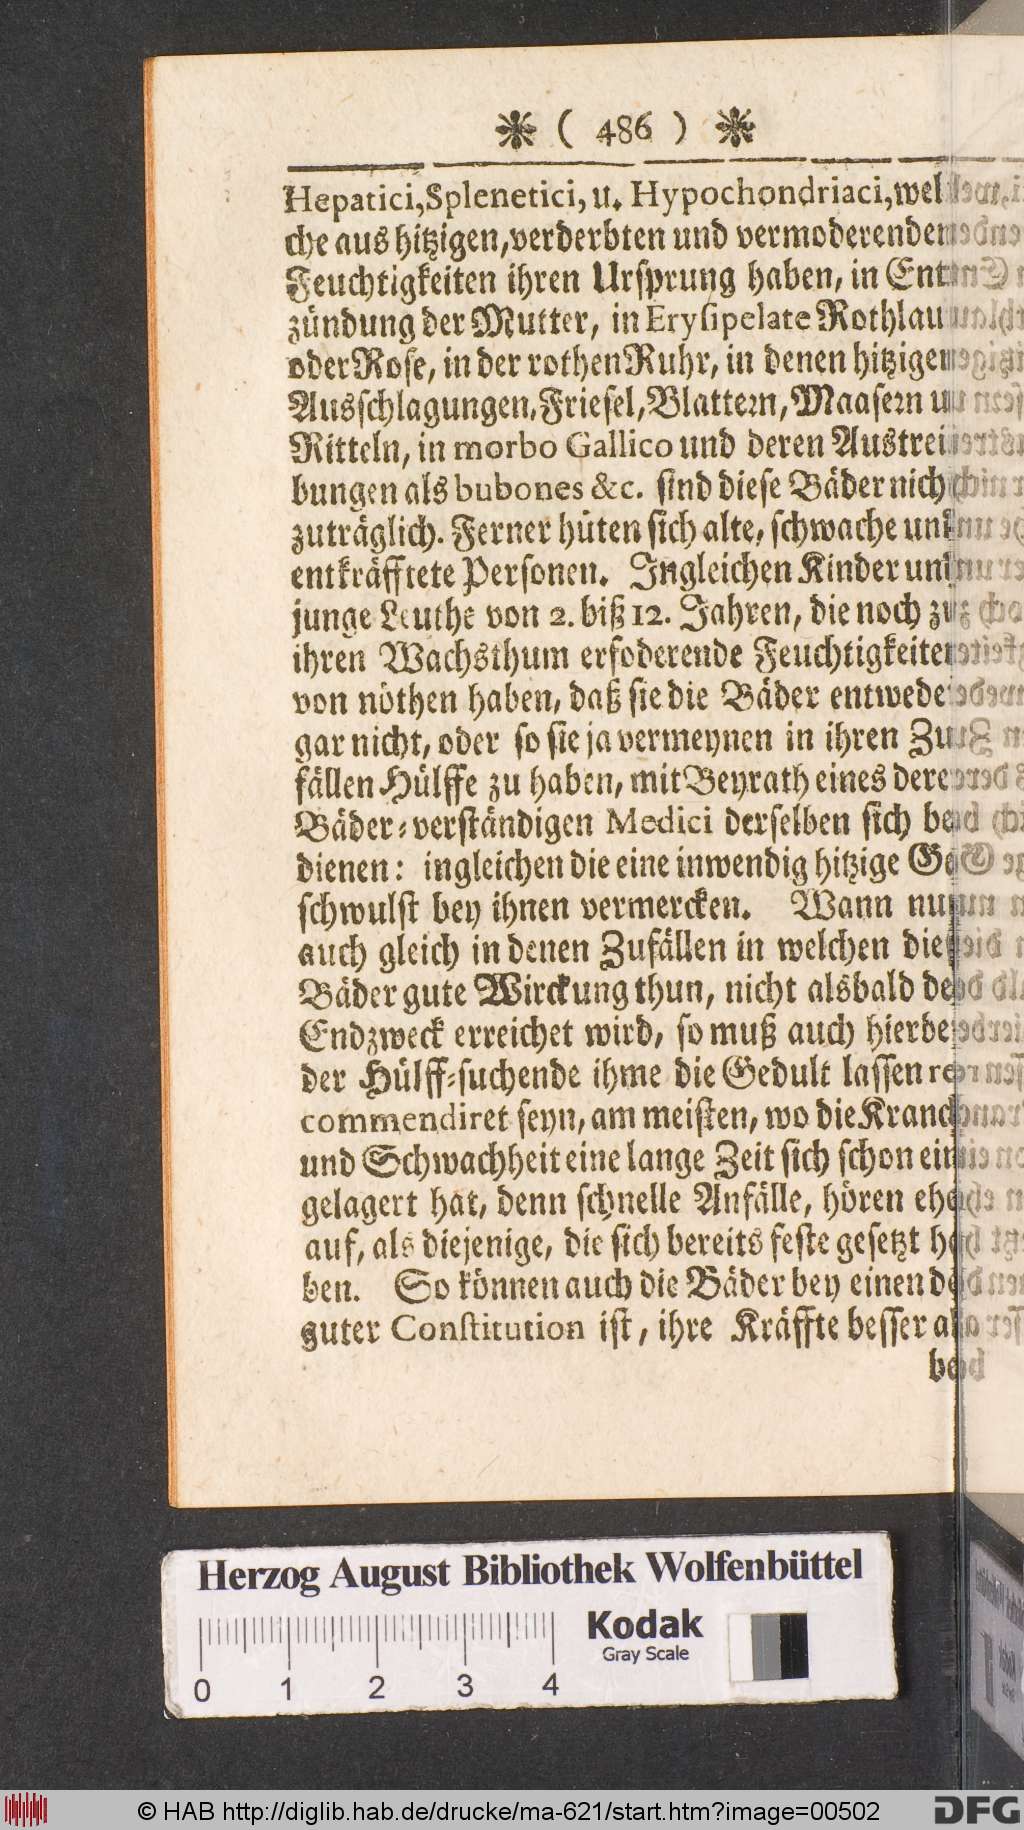 ❋ ( 486 ) ❋
Hepatici, Splenetici, u. Hypochondriaci, wel
che aus hitzigen, verderbten und vermoderenden
Feuchtigkeiten ihren Ursprung haben, in Ent
zündung der Mutter, in Erysipelate Rothlau
oder Rose, in der rothen Ruhr, in denen hitzigen
Ausschlagungen, Friesel, Blattern, Maasern u
Ritteln, in morbo Gallico und deren Austrei
bungen als bubones &c. sind diese Bäder nich
zuträglich. Ferner hüten sich alte, schwache und
entkräfftete Personen. Ingleichen Kinder und
junge Leuthe von 2. biß 12. Jahren, die noch zu
ihren Wachsthum erfoderende Feuchtigkeiten
von nöthen haben, daß sie die Bäder entwede
gar nicht, oder so sie ja vermeynen in ihren Zu
fällen Hülffe zu haben, mit Beyrath eines dere
Bäder-verständigen Medici derselben sich be
dienen: ingleichen die eine inwendig hitzige Ge
schwulst bey ihnen vermercken. Wann nun
auch gleich in denen Zufällen in welchen die
Bäder gute Wirckung thun, nicht alsbald de
Endzweck erreichet wird, so muß auch hierbe
der Hülff-suchende ihme die Gedult lassen re
commendiret seyn, am meisten, wo die Kranck
und Schwachheit eine lange Zeit sich schon ein
gelagert hat, denn schnelle Anfälle, hören ehe
auf, als diejenige, die sich bereits feste gesetzt ha
ben. So können auch die Bäder bey einen de
guter Constitution ist, ihre Kräffte besser als
be
Herzog August Bibliothek Wolfenbüttel
Kodak
Gray Scale
0 1 2 3 4
© HAB http://diglib.hab.de/drucke/ma-621/start.htm?image=00502
DFG